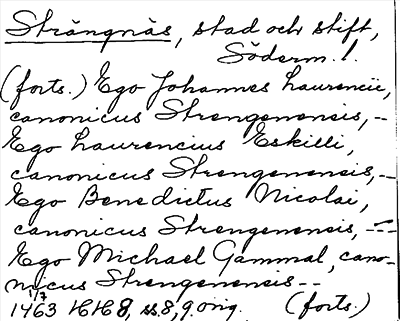 Strängnäs, stad och stift,
Söderm. l.
(forts.) Ego Johannes Laurencii,
canonicus Strengenensis, --
Ego Laurencius Eskilli,
canonicus Strengenensis, --
Ego Benedictus Nicolai,
canonicus Strengenensis, ---
Ego Michael Gammal, cano-
nicus Strengenensis --
1/7
1463 HH 8, ss. 8, 9. orig. (forts.)